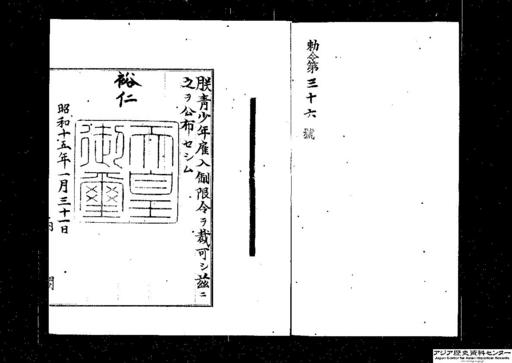 勅令第三十六號
朕青少年雇入制限令ヲ裁可シ茲ニ
之ヲ公布セシム
裕仁
天皇御璽
昭和十五年一月三十一日
アジア歴史資料センター
Japan Center for Asian Historical Records